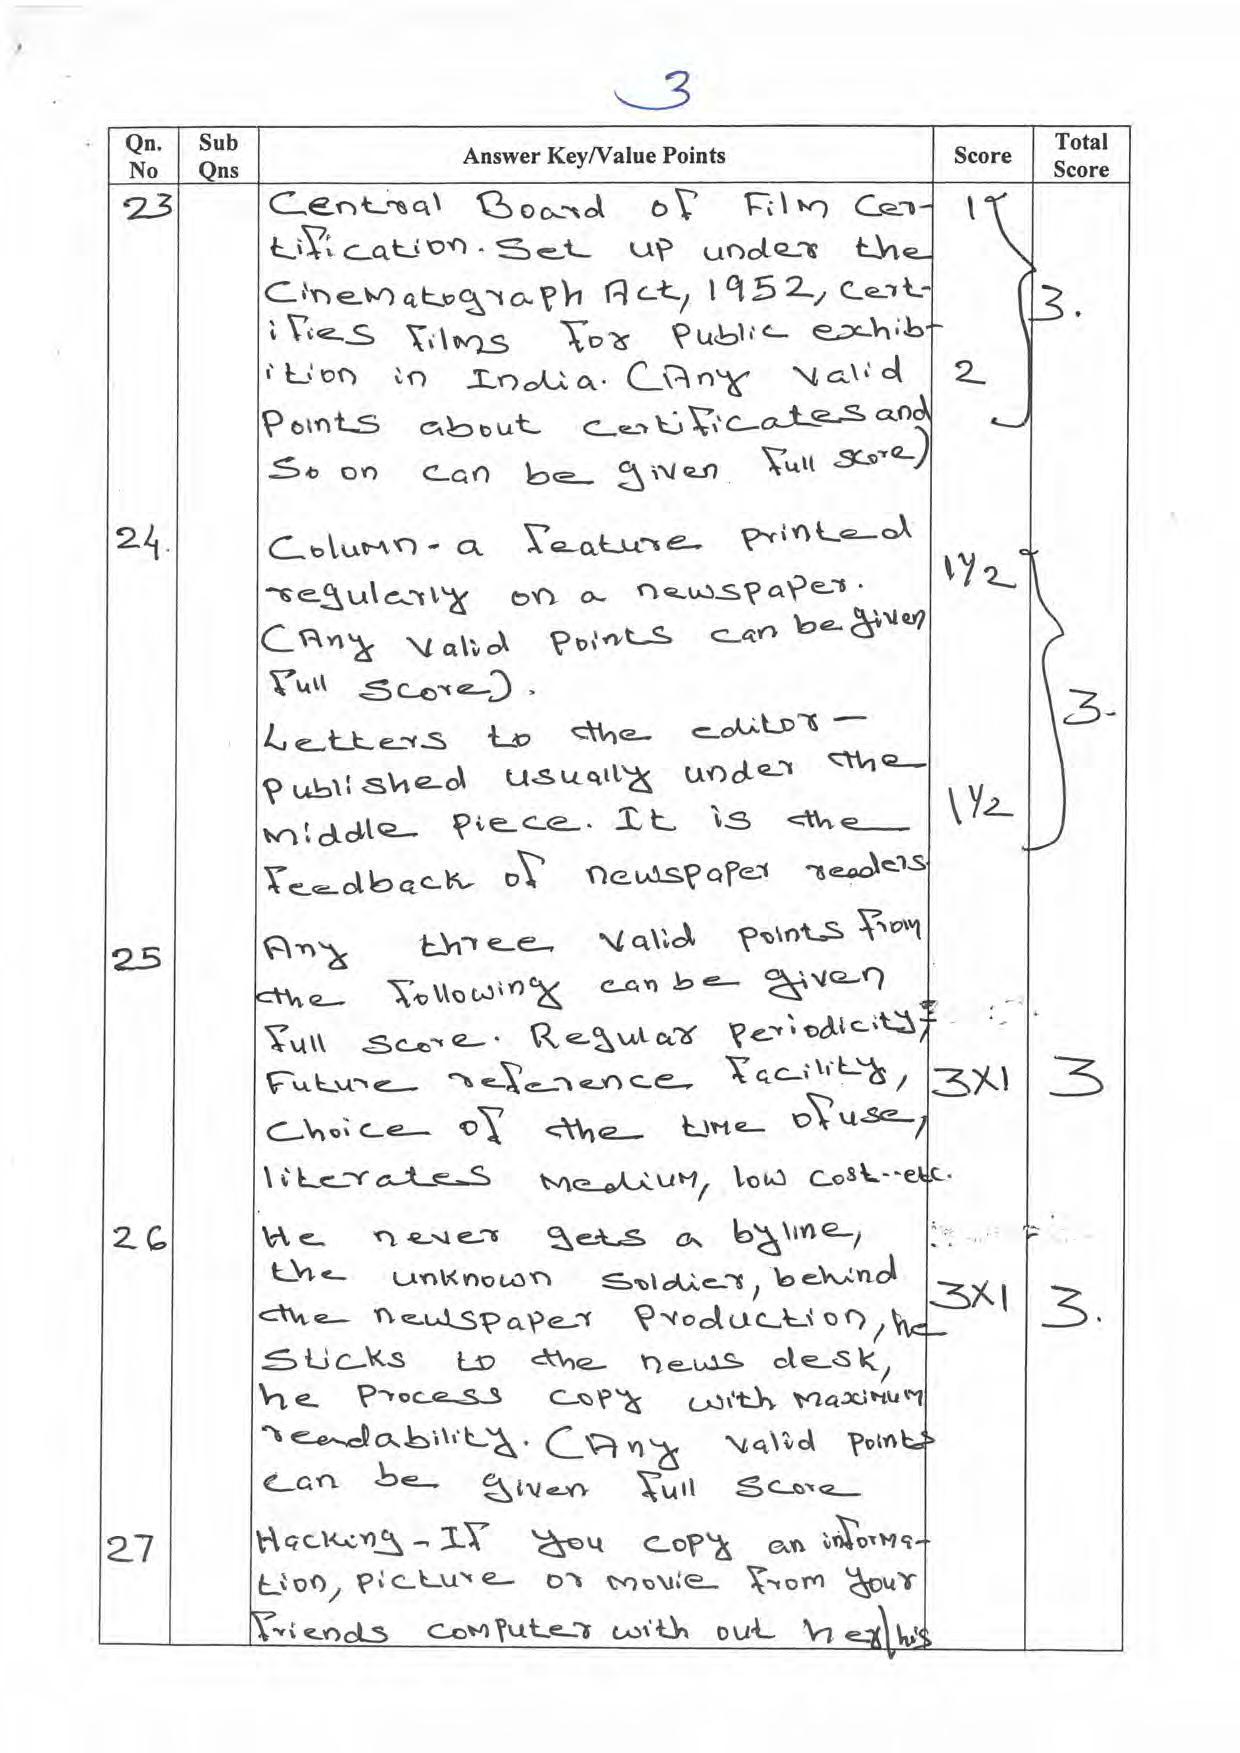 3
Qn. No Sub Qns Answer Key/Value Points Score Total Score
23 Central Board of Film Cer- 1
tification. Set up under the
Cinematograph Act, 1952, cert-
ifies films for public exhib- 3.
ition in India. (Any valid 2
Points about certificates and
so on can be given full score)
24. Column - a feature printed
regularly on a newspaper. 1 1/2
(Any valid points can be given
full score).
Letters to the editor - 3.
published usually under the
middle piece. It is the 1 1/2
feedback of newspaper readers
25 Any three valid points from
the following can be given
full score. Regular periodicity,
Future reference facility, 3X1 3
choice of the time of use,
literates medium, low cost--etc.
26 He never gets a byline,
the unknown soldier, behind
the newspaper production, he 3X1 3.
sticks to the news desk,
he process copy with maximum
readability. (Any valid points
can be given full score
27 Hacking - If you copy an informa-
tion, picture or movie from your
friends computer with out her/his